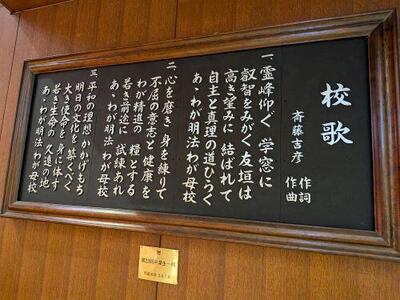 校歌
斉藤吉彦 作詞 作曲
一、霊峰仰ぐ 学窓に
叡智をみがく 友垣は
高き望みに 結ばれて
自主と真理の 道ひらく
あゝわが明法 わが母校
二、心を磨き 身を練りて
不屈の意志と 健康を
わが精進の 糧とする
若き前途に 試練あれ
あゝわが明法 わが母校
三、平和の理想 かかげもち
明日の文化を 築くべく
大き使命を 身に体す
若き生命の 久遠の地
あゝわが明法 わが母校